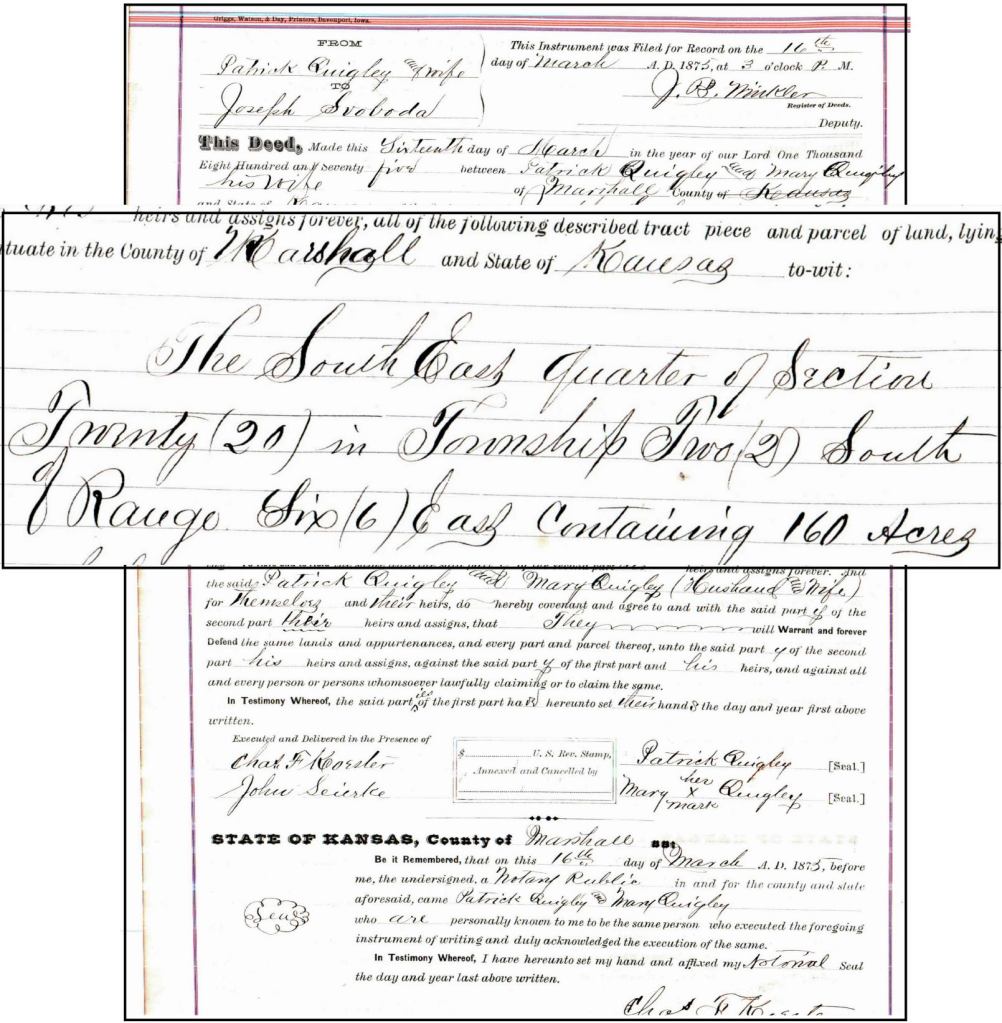 Griggs, Watson, & Day, Printers, Davenport, Iowa.
FROM
Patrick Quigley and wife
TO
Joseph Svoboda
This Instrument was Filed for Record on the 16th
day of March A. D. 1875, at 3 o'clock P. M.
J. B. Winkler
Register of Deeds.
Deputy.
This Deed, Made this Sixteenth day of March in the year of our Lord One Thousand
Eight Hundred and Seventy five between Patrick Quigley and Mary Quigley
his Wife
of Marshall County of Kansas
and State of
heirs and assigns forever, all of the following described tract piece and parcel of land, lying
tuate in the County of Marshall and State of Kansas to-wit:
The South East quarter of Section
Twenty (20) in Township Two (2) South
of Range Six (6) East Containing 160 Acres
heirs and assigns forever. And
the said Patrick Quigley and Mary Quigley (Husband and Wife)
for themselves and their heirs, do hereby covenant and agree to and with the said part y of the
second part their heirs and assigns, that They will Warrant and forever
Defend the same lands and appurtenances, and every part and parcel thereof, unto the said part y of the second
part his heirs and assigns, against the said part y of the first part and his heirs, and against all
and every person or persons whomsoever lawfully claiming or to claim the same.
In Testimony Whereof, the said parties of the first part have hereunto set their hands the day and year first above
written.
Executed and Delivered in the Presence of
Chas F Koester
John Seierke
$ U. S. Rev. Stamp,
Annexed and Cancelled by
Patrick Quigley [Seal.]
Mary her X mark Quigley [Seal.]
STATE OF KANSAS, County of Marshall sst
Be it Remembered, that on this 16th day of March A. D. 1875, before
me, the undersigned, a Notary Public in and for the county and state
aforesaid, came Patrick Quigley & Mary Quigley
who are personally known to me to be the same person who executed the foregoing
instrument of writing and duly acknowledged the execution of the same.
Seal
In Testimony Whereof, I have hereunto set my hand and affixed my Notorial Seal
the day and year last above written.
Chas F